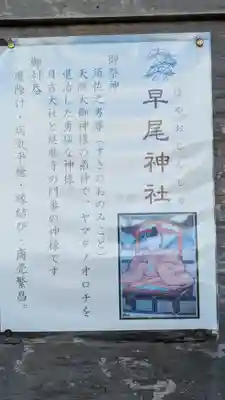 はやおじんじゃ
早尾神社
御祭神
須佐之男尊(すさのおのみこと)
天照大御神様の弟神で、ヤマタノオロチを
退治した勇猛な神様
日吉大社と延暦寺の門番の神様です
御利益
魔除け・病気平癒・縁結び・商売繁昌。